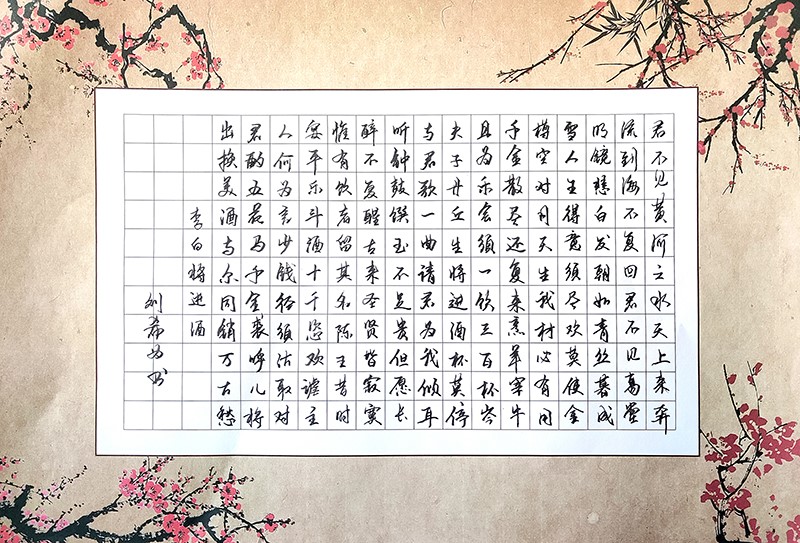 君不见黄河之水天上来奔
流到海不复回君不见高堂
明镜悲白发朝如青丝暮成
雪人生得意须尽欢莫使金
樽空对月天生我材必有用
千金散尽还复来烹羊宰牛
且为乐会须一饮三百杯岑
夫子丹丘生将进酒杯莫停
与君歌一曲请君为我倾耳
听钟鼓馔玉不足贵但愿长
醉不复醒古来圣贤皆寂寞
惟有饮者留其名陈王昔时
宴平乐斗酒十千恣欢谑主
人何为言少钱径须沽取对
君酌五花马千金裘呼儿将
出换美酒与尔同销万古愁
李白将进酒
刘希书